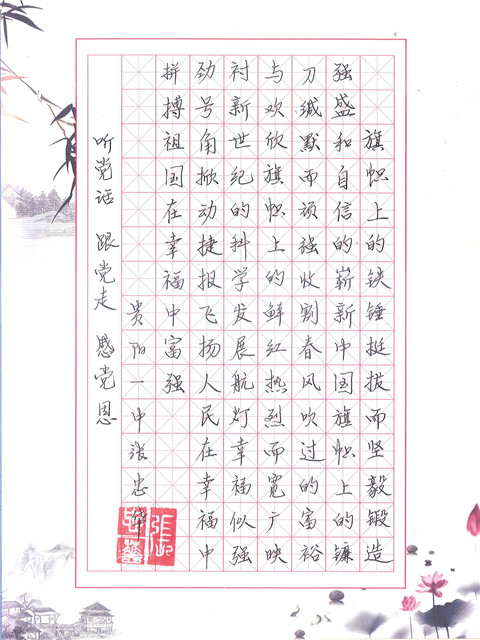 旗帜上的铁锤挺拔而坚毅锻造
强盛和自信的崭新中国旗帜上的镰
刀缄默而顽强收割春风吹过的富裕
与欢欣旗帜上的鲜红热烈而宽广映
衬新世纪的科学发展航灯幸福似强
劲号角掀动捷报飞扬人民在幸福中
拼搏祖国在幸福中富强
贵阳一中张忠华
听党话 跟党走 感党恩